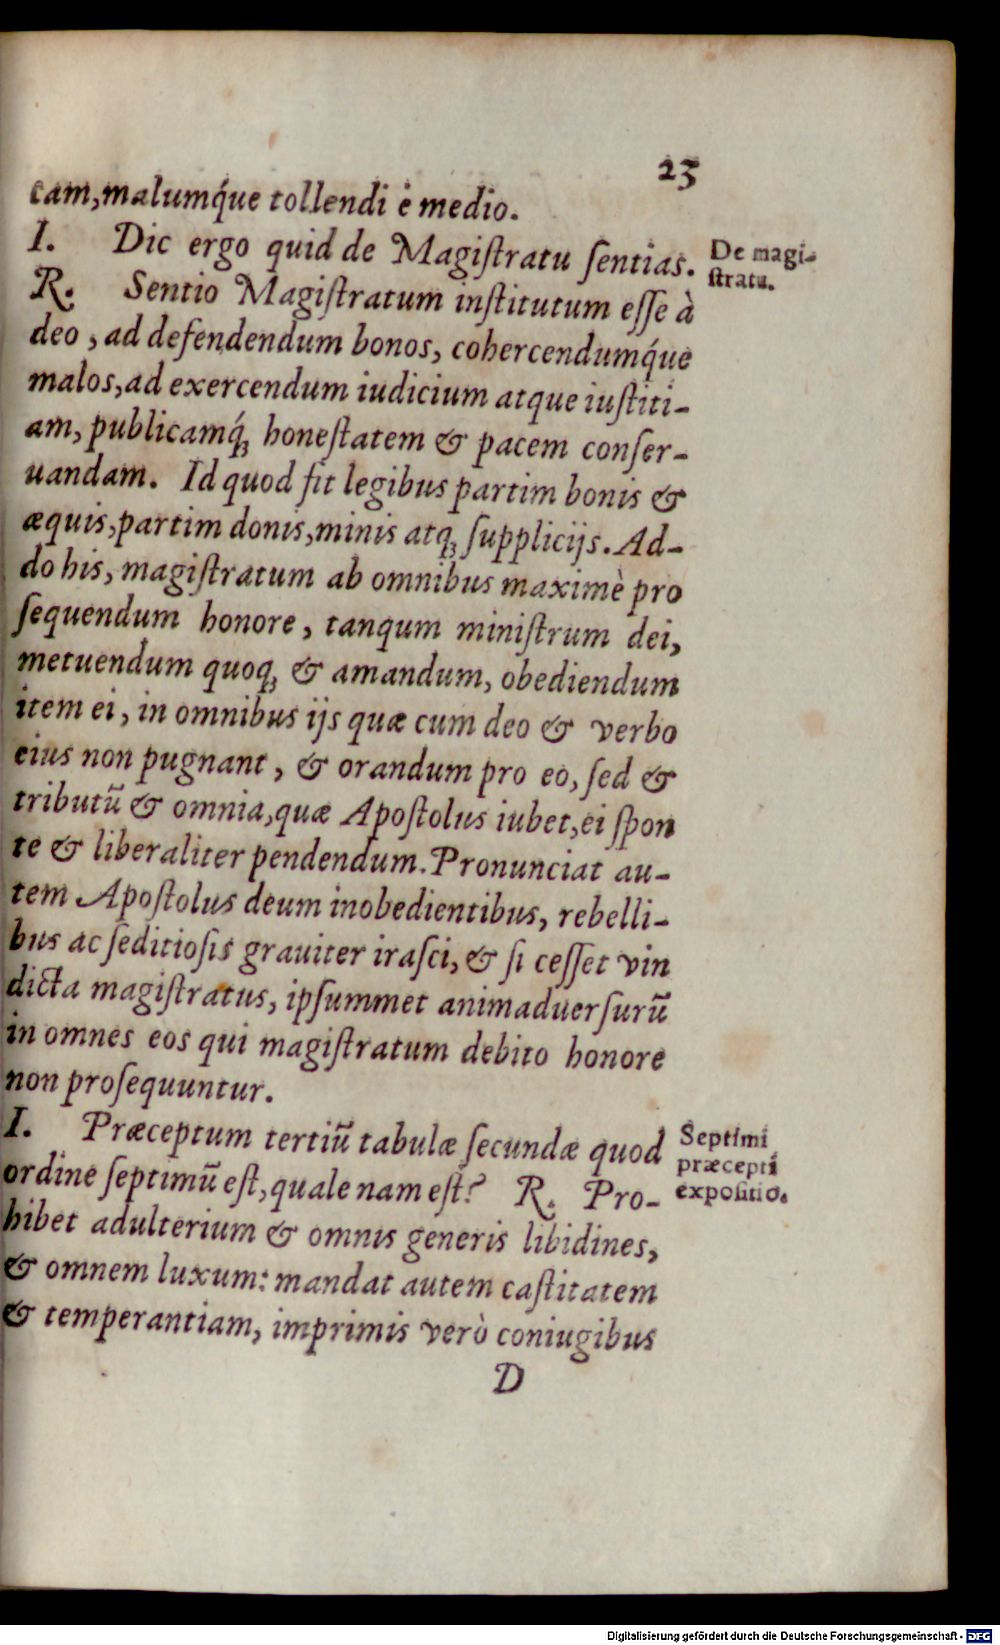 23
cam, malumq́ue tollendi è medio.
I. Dic ergo quid de Magiſtratu ſentias.
De magi-
ſtratu.
R. Sentio Magiſtratum inſtitutum eſſe à
deo, ad defendendum bonos, cohercendumq́ue
malos, ad exercendum iudicium atque iuſtiti-
am, publicamq́ꝫ honeſtatem & pacem conſer-
uandam. Id quod fit legibus partim bonis &
æquis, partim donis, minis atqꝫ ſupplicijs. Ad-
do his, magiſtratum ab omnibus maximè pro
ſequendum honore, tanqum miniſtrum dei,
metuendum quoqꝫ & amandum, obediendum
item ei, in omnibus ijs quæ cum deo & verbo
eius non pugnant, & orandum pro eo, ſed &
tributū & omnia, quæ Apoſtolus iubet, ei ſpon
te & liberaliter pendendum. Pronunciat au-
tem Apoſtolus deum inobedientibus, rebelli-
bus ac ſeditioſis grauiter iraſci, & ſi ceſſet vin
dicta magiſtratus, ipſummet animaduerſurū
in omnes eos qui magiſtratum debito honore
non proſequuntur.
I. Præceptum tertiū tabulæ ſecundæ quod
Septimi
præcepti
expoſitio.
ordine ſeptimū eſt, quale nam eſt? R. Pro-
hibet adulterium & omnis generis libidines,
& omnem luxum: mandat autem caſtitatem
& temperantiam, imprimis verò coniugibus
D
Digitalisierung gefördert durch die Deutsche Forschungsgemeinschaft - DFG